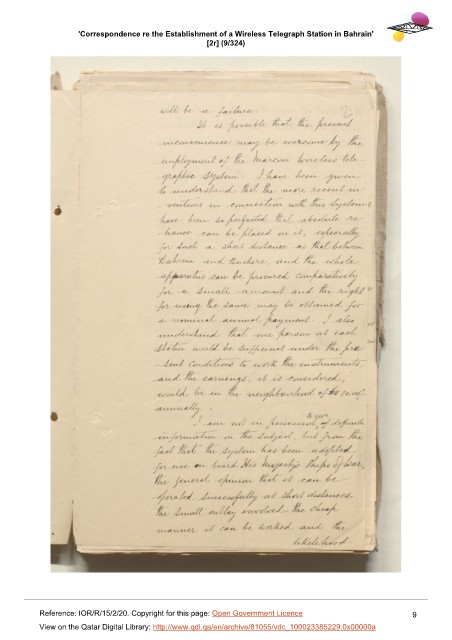 'Correspondence re the Establishment of a Wireless Telegraph Station in Bahrain'
[2r] (9/324)
will be a failure.
2
It is possible that the present
inconvenience may be overcome by the
employment of the Marconi wireless tele-
graphic system. I have been given
to understand that the more recent in-
ventions in connection with this system
have been so perfected that absolute re-
liance can be placed on it, especially
for such a short distance as that between
Bahrein and Bushire, and the whole
apparatus can be procured comparatively
for a small amount and the right
for using the same may be obtained for
a nominal annual payment. I also
understand that one person at each
station would be sufficient under the pre
sent conditions to work the instruments,
and the earnings, it is considered,
would be in the neighbourhood of
annually.
I am not in possession of definite
information on the subject, but from the
fact that the system has been adopted
for use on board His Majesty's Ships of War,
the general opinion that it can be
operated successfully at short distances
the small outlay involved the cheap
manner it can be worked and the
likelihood
Reference: IOR/R/15/2/20. Copyright for this page: Open Government Licence
9
View on the Qatar Digital Library: http://www.qdl.qa/en/archive/81055/vdc_100023385229.0x00000a